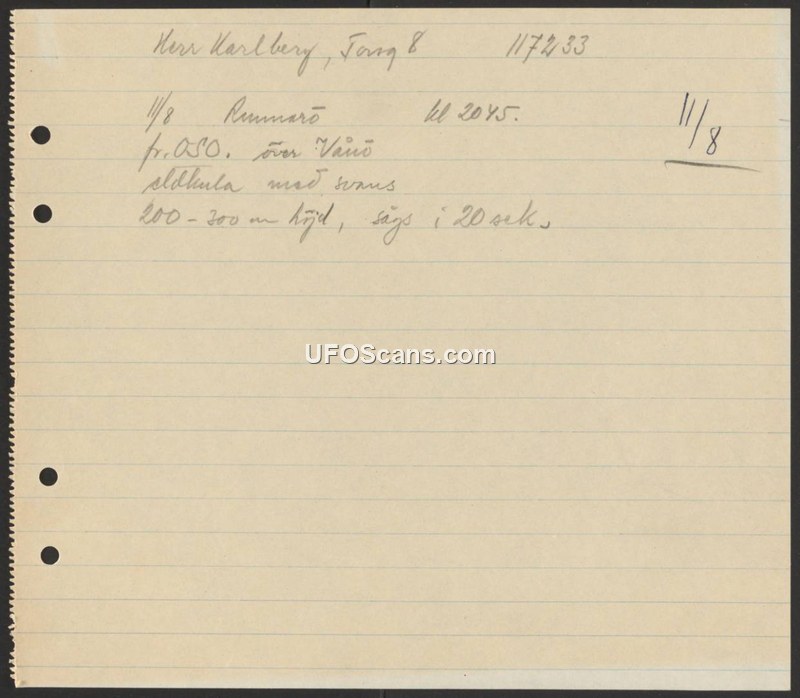 Herr Karlberg, Torsg 8 117233
11/8 Runmarö kl 2045. 11/8
fr. OSO. över Vånö
eldkula med svans
200 - 300 m höjd, sågs i 20 sek.
UFOScans.com